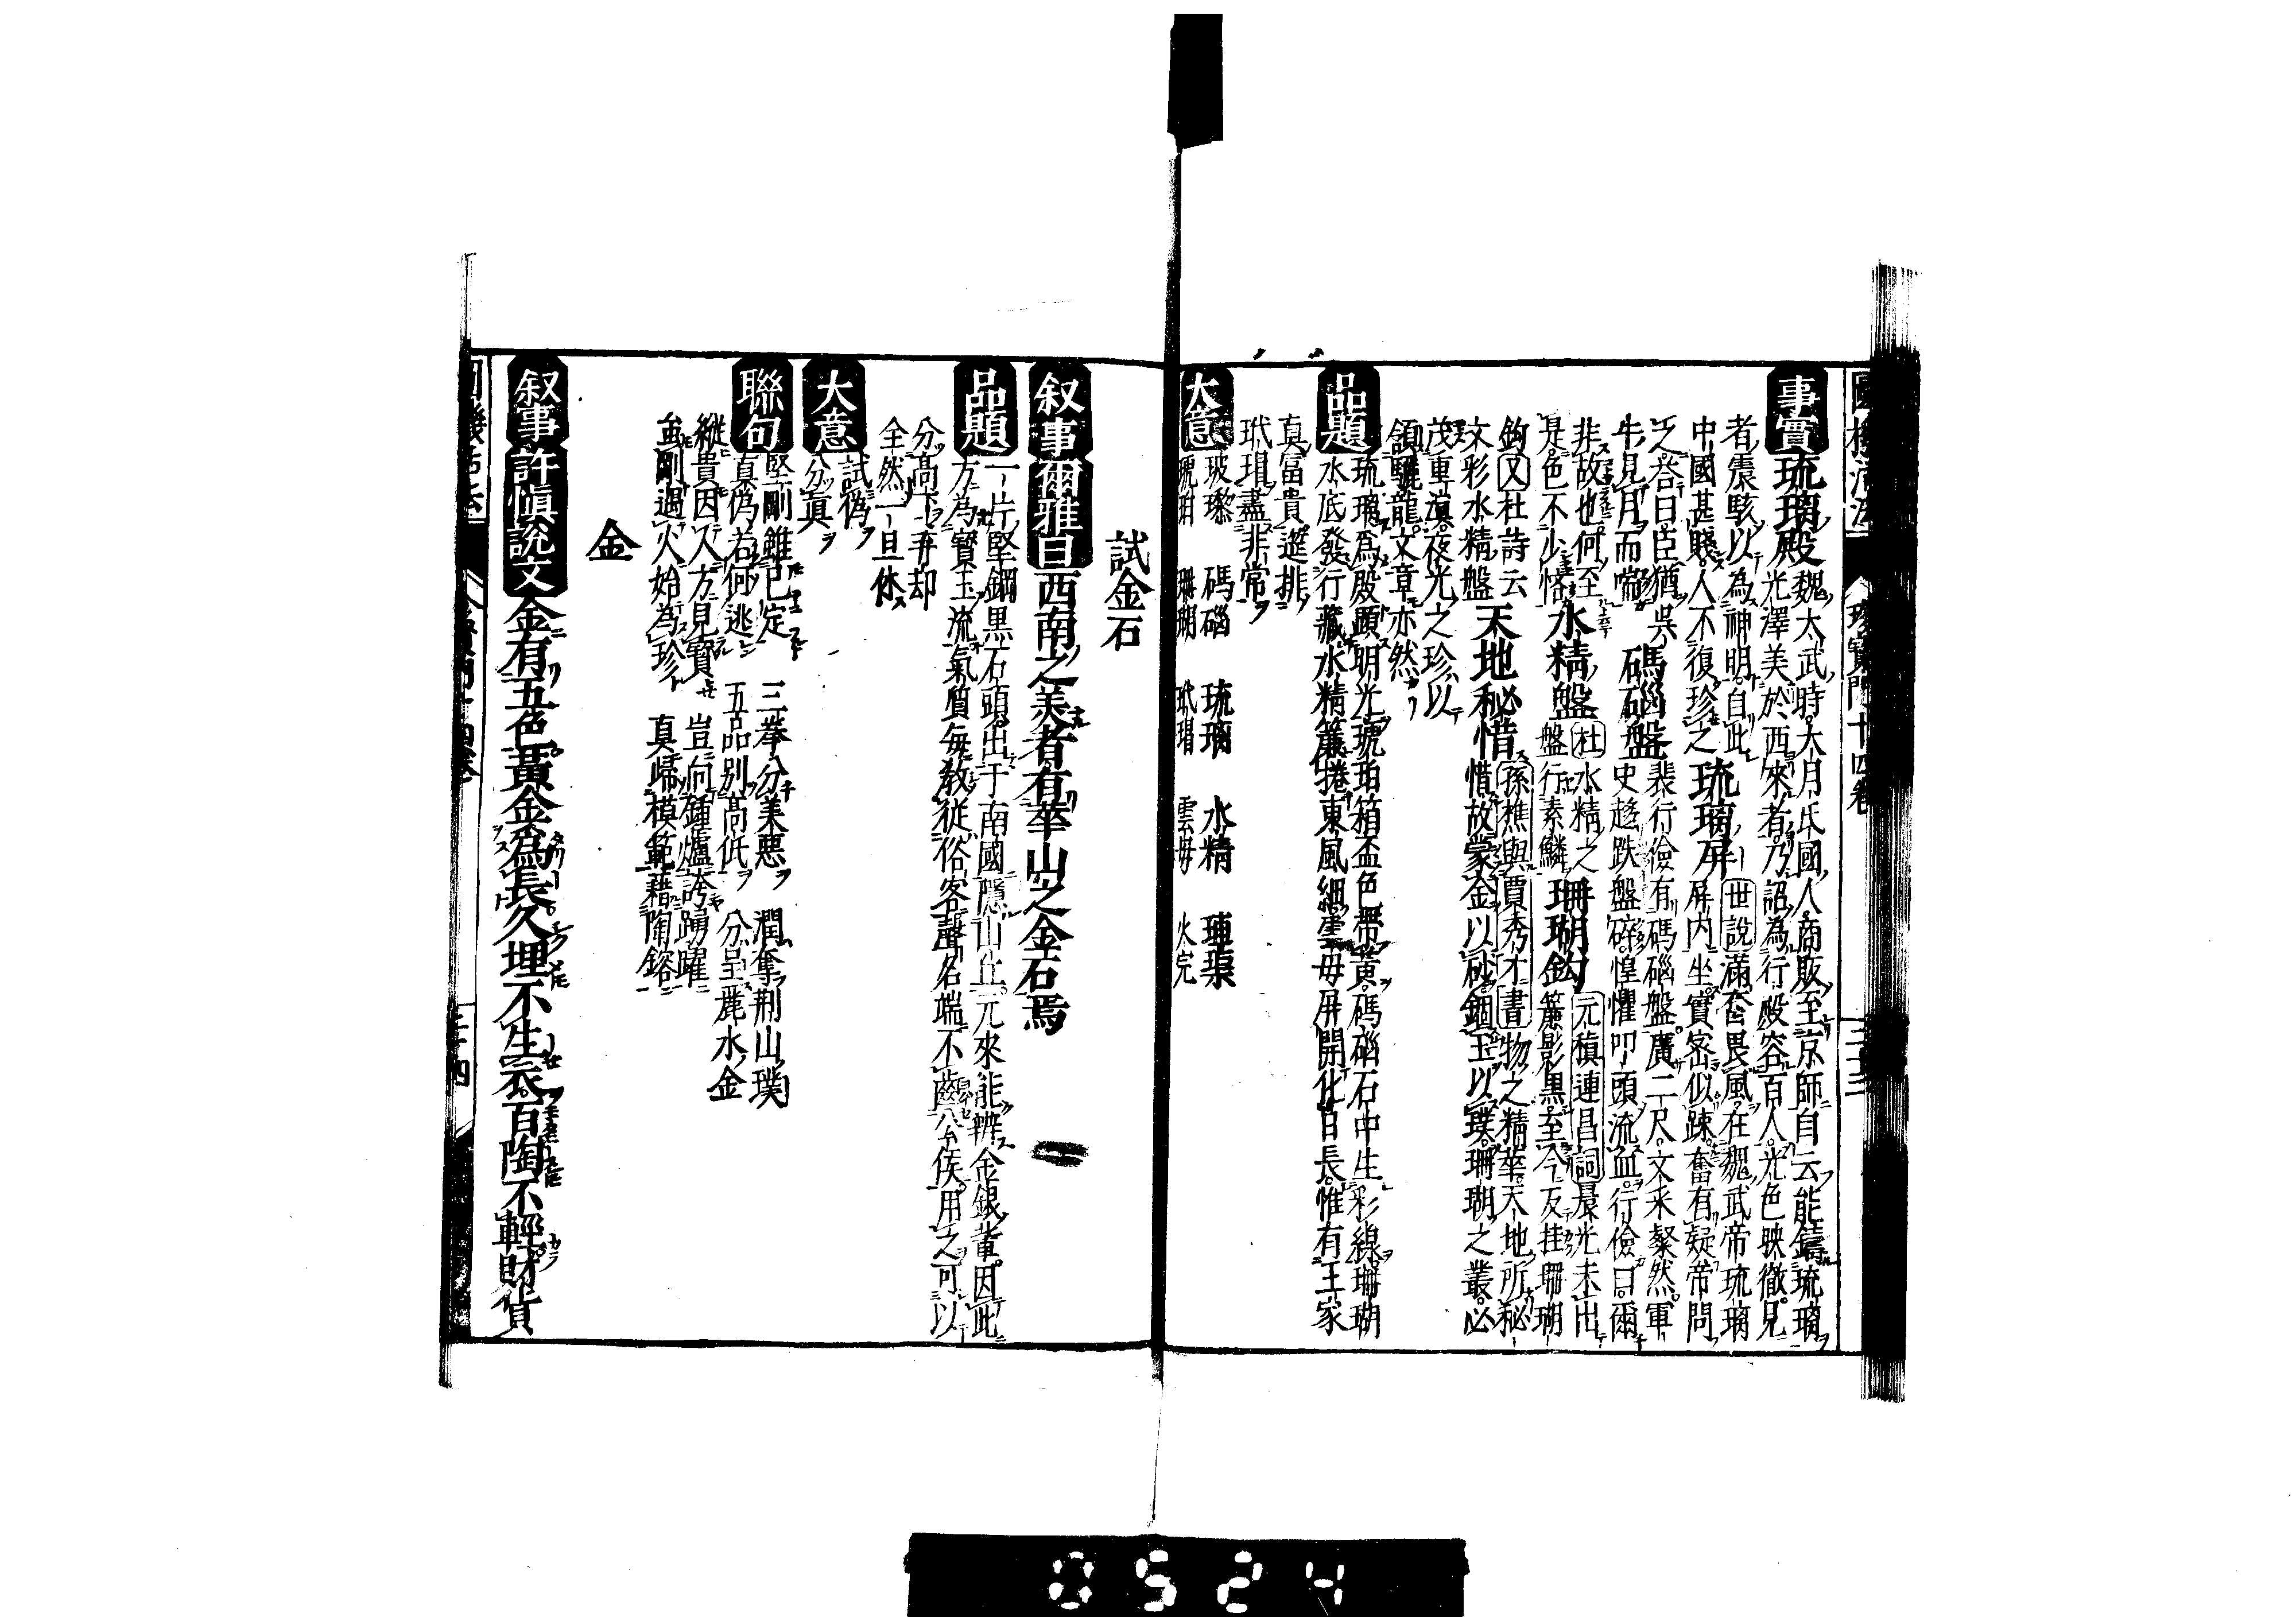 事實
琉璃殿 魏大武時大月氏國人商販至京師自云能鑄琉璃
光澤美於西來者乃詔為行殿容百人光色映徹見
者震駭以為神明自此
中國甚賤人不復珍之
琉璃屏 世說滿奮畏風在魏武帝琉璃
屏内坐實密似踈奮有疑帝問
之答曰臣猶吳
牛見月而喘
碼碯盤 裴行儉有碼碯盤廣二尺文采粲然軍
史趍跌盤碎惶懼叩頭流血行儉曰爾
非故也何至
是色不少悋
水精盤 杜水精之
盤行素鱗
珊瑚鈎 元稹連昌詞晨光未出
簾影黒至今反挂珊瑚
鈎又杜詩云
文彩水精盤
天地秘惜 孫樵與賈秀才書物之精華天地所秘
惜故蒙金以砂錮玉以璞珊瑚之叢必
茂重溟夜光之珍以
頷驪龍文章亦然
品題
琉璃爲殿顯明光琥珀箱盃色帯黄碼碯石中生彩線珊瑚
水底發行藏水精簾捲東風細雲母屏開化日長惟有王家
真冨貴遝排
玳瑁盡非常
大意
玻瓈 碼碯 琉璃 水精 硨渠
琥珀 珊瑚 玳瑁 雲母 火完
試金石
叙事 爾雅曰 西南之美者有華山之金石焉
品題
一片堅鋼黒石頭出于南國隱山丘元來能辨金銀輩因此
方為寳玉流氣質毎教從俗客聲名端不齒公侯用之可以
分髙下弃却
全然一旦休
大意
試僞
分真
聯句
堅剛雖已定 三拳分美惡 潤奪荆山璞
真僞若何逃 五品别髙低 分呈麗水金
縱貴因人方見寳 豈向鍾爐誇踴躍
至剛過火始為珍 真歸模範藉陶鎔
金
叙事 許愼説文 金有五色黄金爲長久埋不生衣百陶不輕財貨